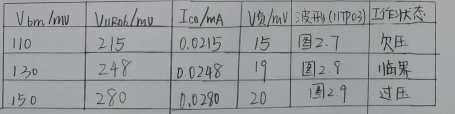 Vbm/mV V11R06/mV Ico/mA V负/mV 波形(11TP03) 工作状态
110 215 0.0215 15 图2.7 欠压
130 248 0.0248 19 图2.8 临界
150 280 0.0280 20 图2.9 过压